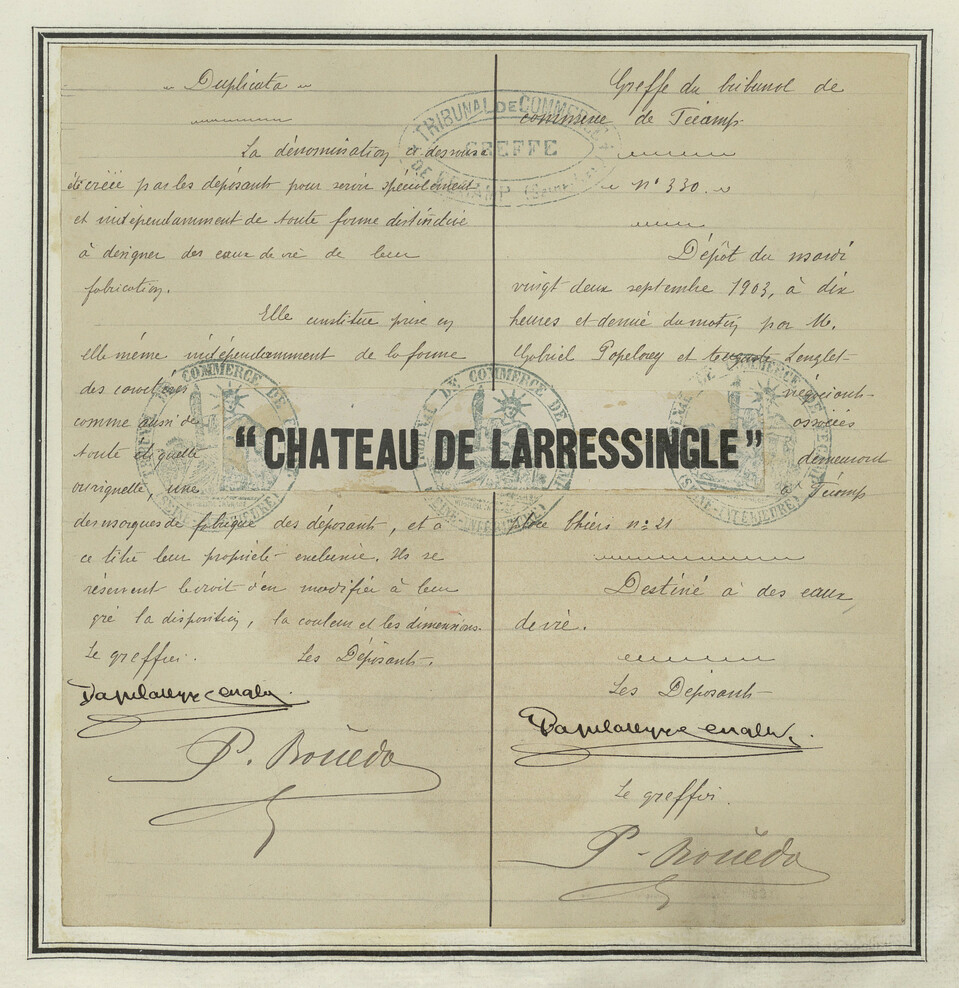 Duplicata
La dénomination ci dessous
été créée par les déposant pour servir spécialement
et indépendamment de toute forme distinctive
à désigner des eaux de vie de leur
fabrication.
Elle constitue prise en
elle même indépendamment de la forme
des caractères
comme aussi de
toute étiquette
ou vignette, une
des marques de fabrique des déposant, et à
ce titre leur propriété exclusive. Ils se
réservent le droit d'en modifier à leur
gré la disposition, la couleur et les dimensions.
Le greffier. Les Déposant.
P. Bouëda
Greffe du tribunal de
commerce de Fécamp
TRIBUNAL DE COMMERCE
GREFFE
DE FECAMP (Seine-Inf.)
N° 330.
Dépôt du mardi
vingt deux septembre 1903, à dix
heures et demie du matin par M.
Gabriel Papelorey et Auguste Lenglet
négociants
associés
demeurant
à Fécamp
place Thiers n° 21
"CHATEAU DE LARRESSINGLE"
TRIBUNAL DE COMMERCE DE FECAMP
(SEINE-INFERIEURE)
TRIBUNAL DE COMMERCE DE FECAMP
(SEINE-INFERIEURE)
TRIBUNAL DE COMMERCE DE FECAMP
(SEINE-INFERIEURE)
Destiné à des eaux
de vie.
Les Déposant
Le greffier.
P. Bouëda